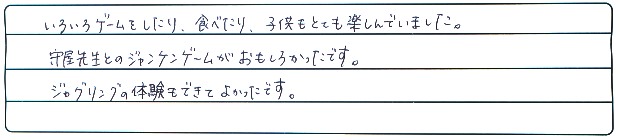 いろいろゲームをしたり、食べたり、子供もとても楽しんでいました。
守屋先生とのジャンケンゲームがおもしろかったです。
ジャグリングの体験もできてよかったです。